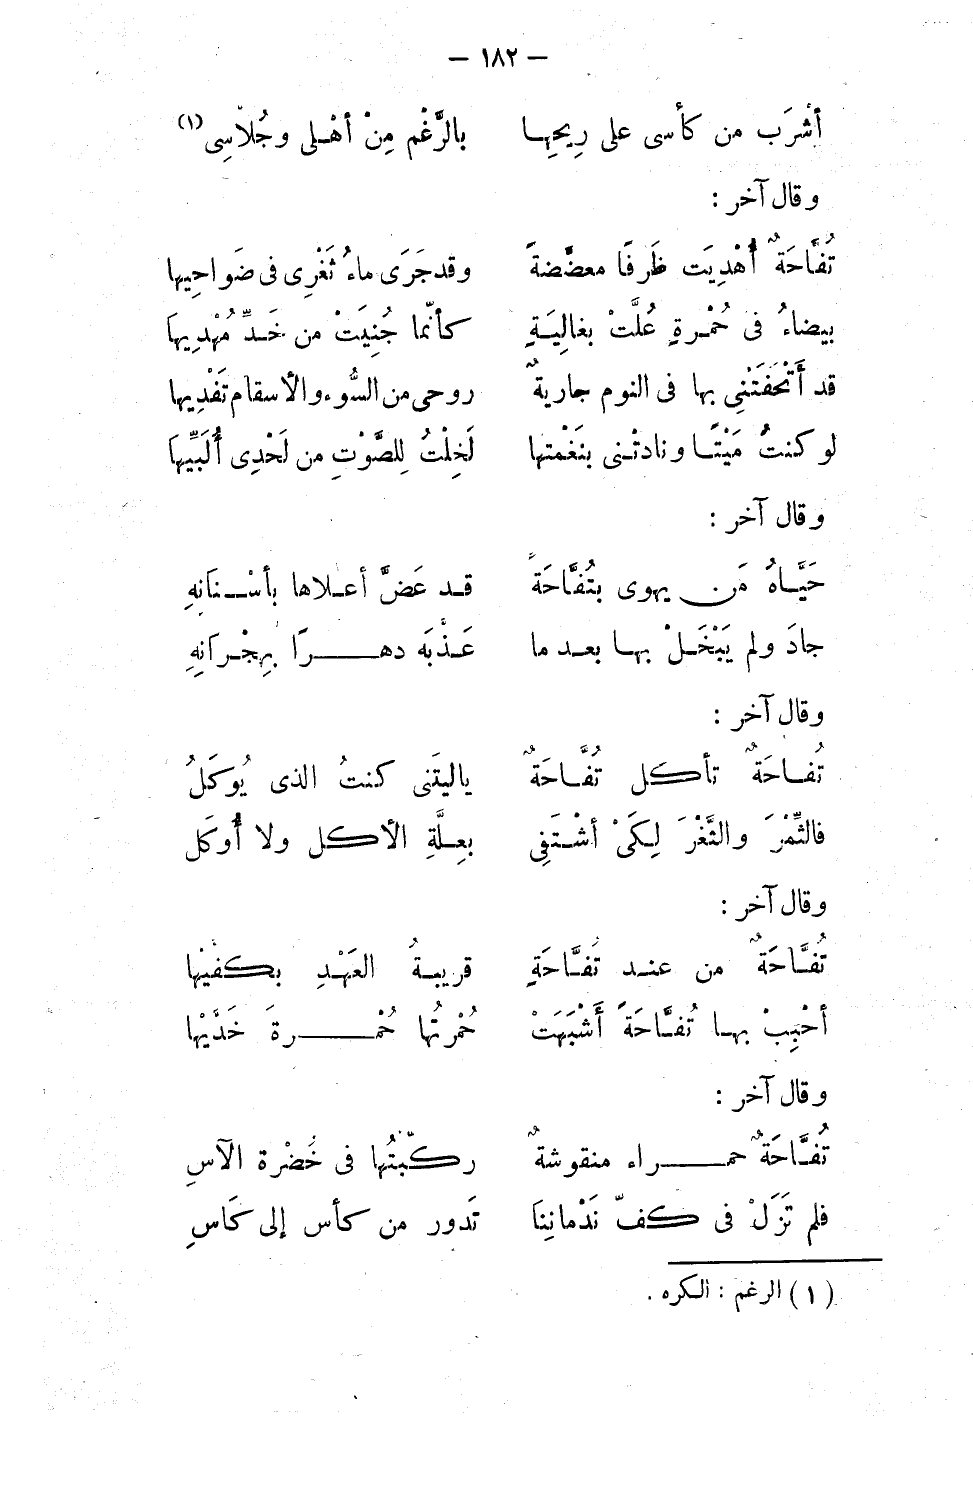 — ١٨٢ —
أشْرَب من كأسى على رِيحِهـا بالرَّغْم مِنْ أهْـلى وجُلاّسِى(١)
وقال آخر :
تُفَّاحَةٌ أُهْدِيَت ظَرفًا معضَّضةً وقد جَرَى ماءُ ثَغْرِى فى ضَواحِيها
بيضاءُ فى حُمْـرةٍ عُلَّتْ بغالِيَـةٍ كأنّما جُنِيَتْ من خَـدِّ مُهْدِيهاَ
قد أَتْحَفَتْنِى بها فى النوم جاريةٌ روحى من السُّوء والأسقام تَفْدِيها
لو كنتُ مَيْتًـا ونادتْـنى بنَغْمتها لَخِلْتُ لِلصَّوْتِ من لَحْدِى أُلَبِّيهَا
وقال آخر :
حَيَّـاهُ مَن يهوى بتُفَّاحَةً قـد عَضَّ أعـلاها بأسْـنَانِهِ
جادَ ولم يَبْخَـلْ بهـا بعـد ما عَـذَّبَه دهـرًا بِهِجْـرَانِهِ
وقال آخر :
تُفـاحَةٌ تأكل تُفَّـاحَةٌ ياليتَنى كنتُ الذى يُوكَلُ
فالثِّمْرَ والثَّغْرَ لِـكَىْ أشْـتَفِى بعِـلَّةِ الأكل ولا أُوكَل
وقال آخر :
تُفَّاحَةٌ من عنـد تُفَّـاحَةٍ قريبـةُ العَهْـدِ بكفيْها
أحْبِبْ بهـا تُفـَّاحَةً أَشْبَهَتْ حُمْرتُها حُمْـرةَ خَدَّيْها
وقال آخر :
تُفَّـاحَةٌ حمـراء منقوشةٌ ركّبْتُها فى خُضْرة الآسِ
فلم تَزَلْ فى كفّ نَدْمانِنَا تَدور من كأس إلى كَاسِ
(١) الرغم : الكره .